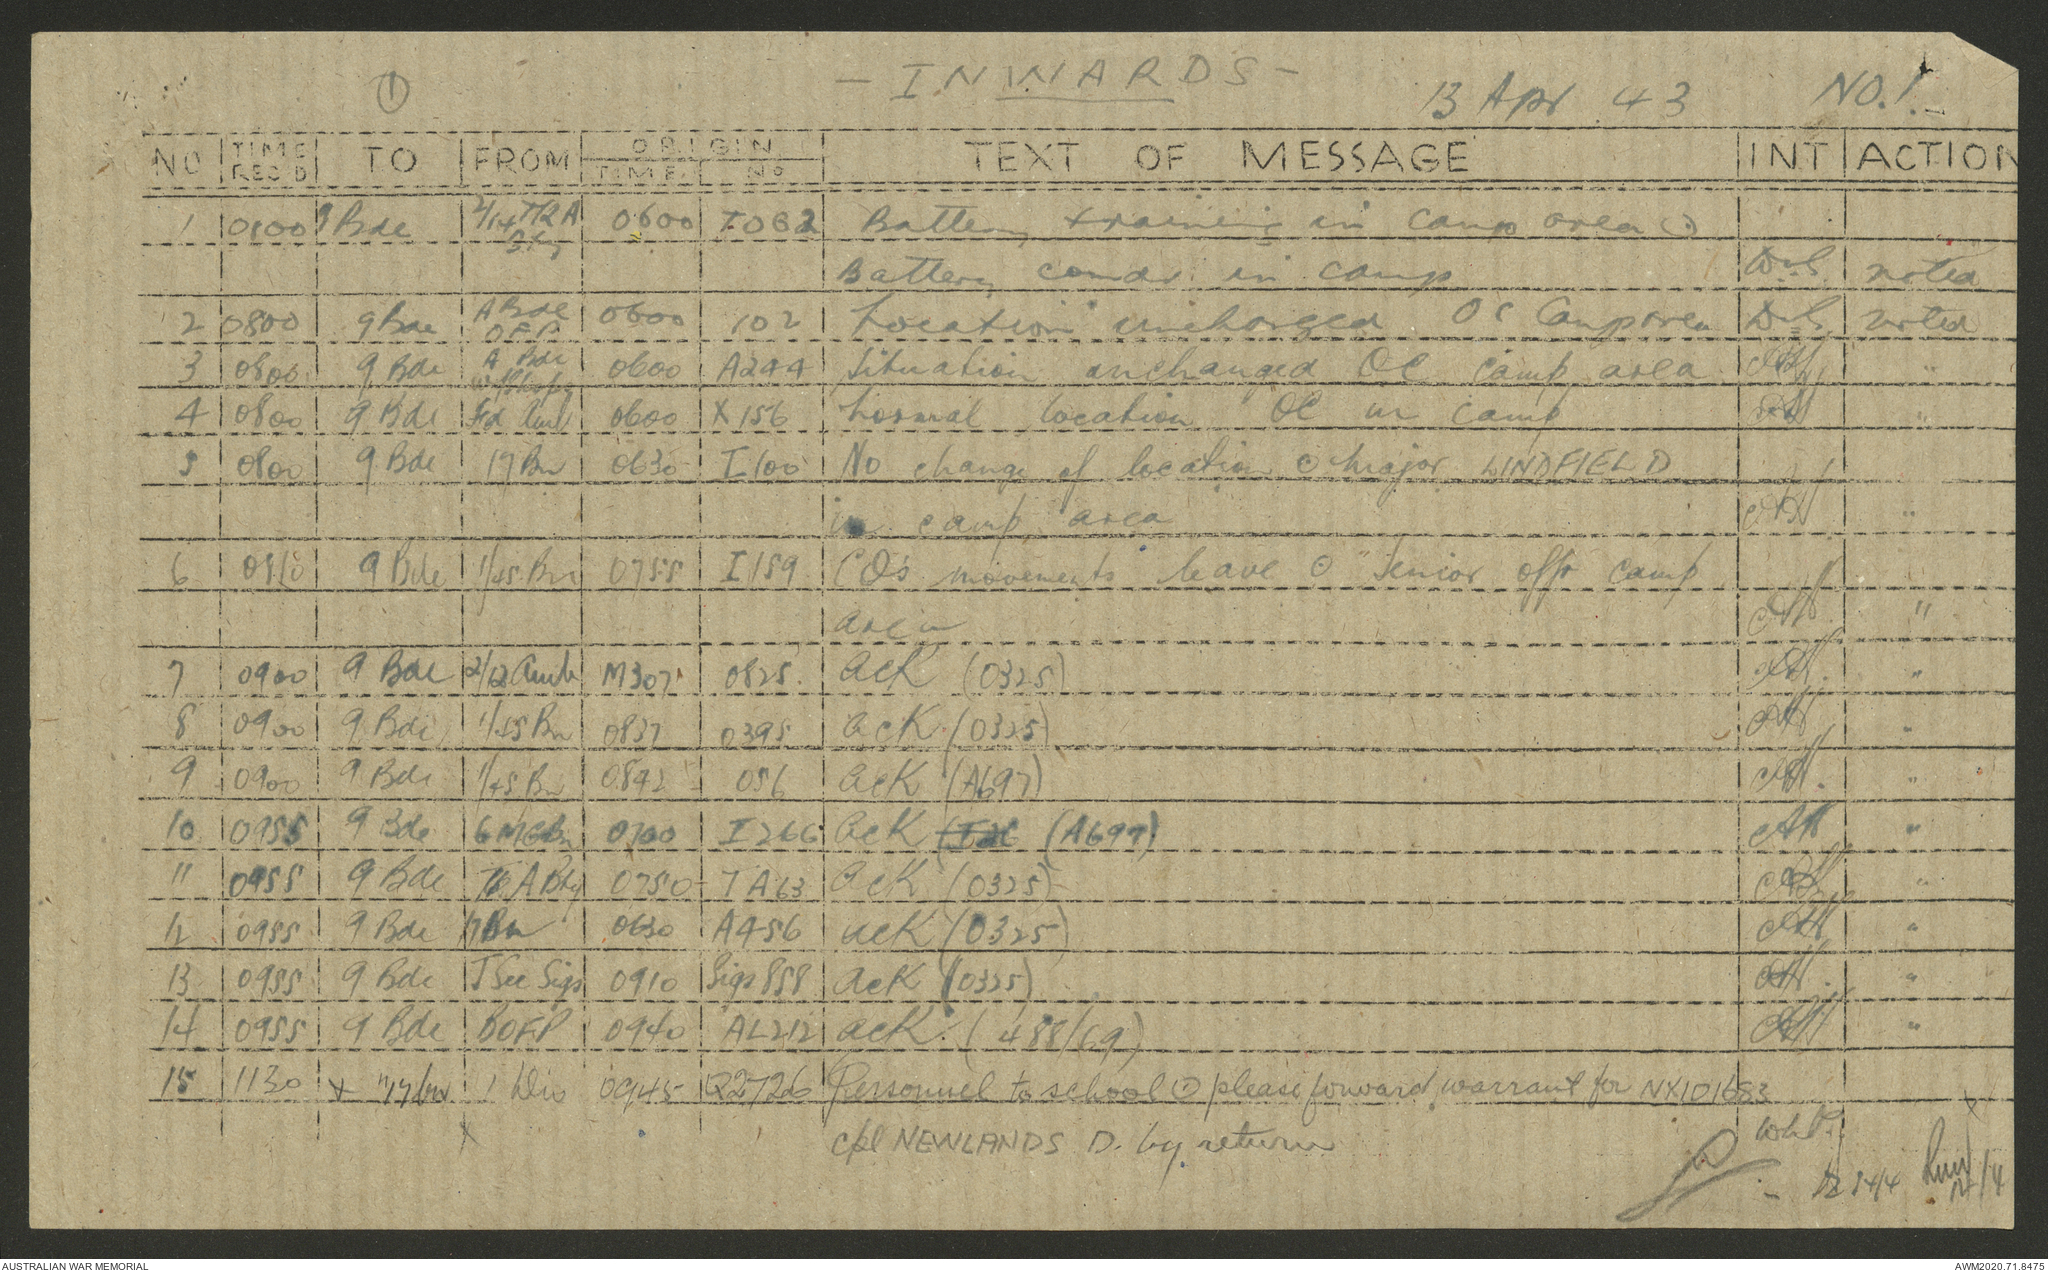 ①
- INWARDS -
13 Apr 43
NO. 1.
NO | TIME REC'D | TO | FROM | ORIGIN TIME | ORIGIN NO | TEXT OF MESSAGE | INT | ACTION
1 | 0800 | 9 Bde | 2/14 Bty | 0600 | Battery training in camp area ⊙
Battery comdr in camp | noted
2 | 0800 | 9 Bde | A Bde OFP | 0600 | 102 | Location unchanged OC Camp area | noted
3 | 0800 | 9 Bde | A Bde | 0600 | A244 | Situation unchanged OC camp area | "
4 | 0800 | 9 Bde | Fd Amb | 0600 | X156 | Normal location OC in camp | "
5 | 0800 | 9 Bde | 17 Bn | 0630 | I100 | No change of location ⊙ Major LINDFIELD
in camp area | "
6 | 0810 | 9 Bde | 1/45 Bn | 0755 | I159 | CO's movements leave ⊙ Senior offr camp
area | "
7 | 0900 | 9 Bde | 2/12 Amb | M307 | 0825 | ack (0325) | "
8 | 0900 | 9 Bde | 1/45 Bn | 0837 | 0395 | ack (0325) | "
9 | 0900 | 9 Bde | 1/45 Bn | 0842 | 056 | ack (A697) | "
10 | 0955 | 9 Bde | 6 MG Bn | 0700 | I266 | ack (A697) | "
11 | 0955 | 9 Bde | A Bty | 0750 | TA63 | ack (0325) | "
12 | 0955 | 9 Bde | 17 Bn | 0630 | A456 | ack (0325) | "
13 | 0955 | 9 Bde | J Sec Sigs | 0910 | Sigs 858 | ack (0325) | "
14 | 0955 | 9 Bde | BOFP | 0940 | AL212 | ack (488/69) | "
15 | 1130 | 1 Div | 0945 | Q2726 | Personnel to school ⊙ please forward warrant for NX101683
cpl NEWLANDS D. by return
AUSTRALIAN WAR MEMORIAL
AWM2020.71.8475